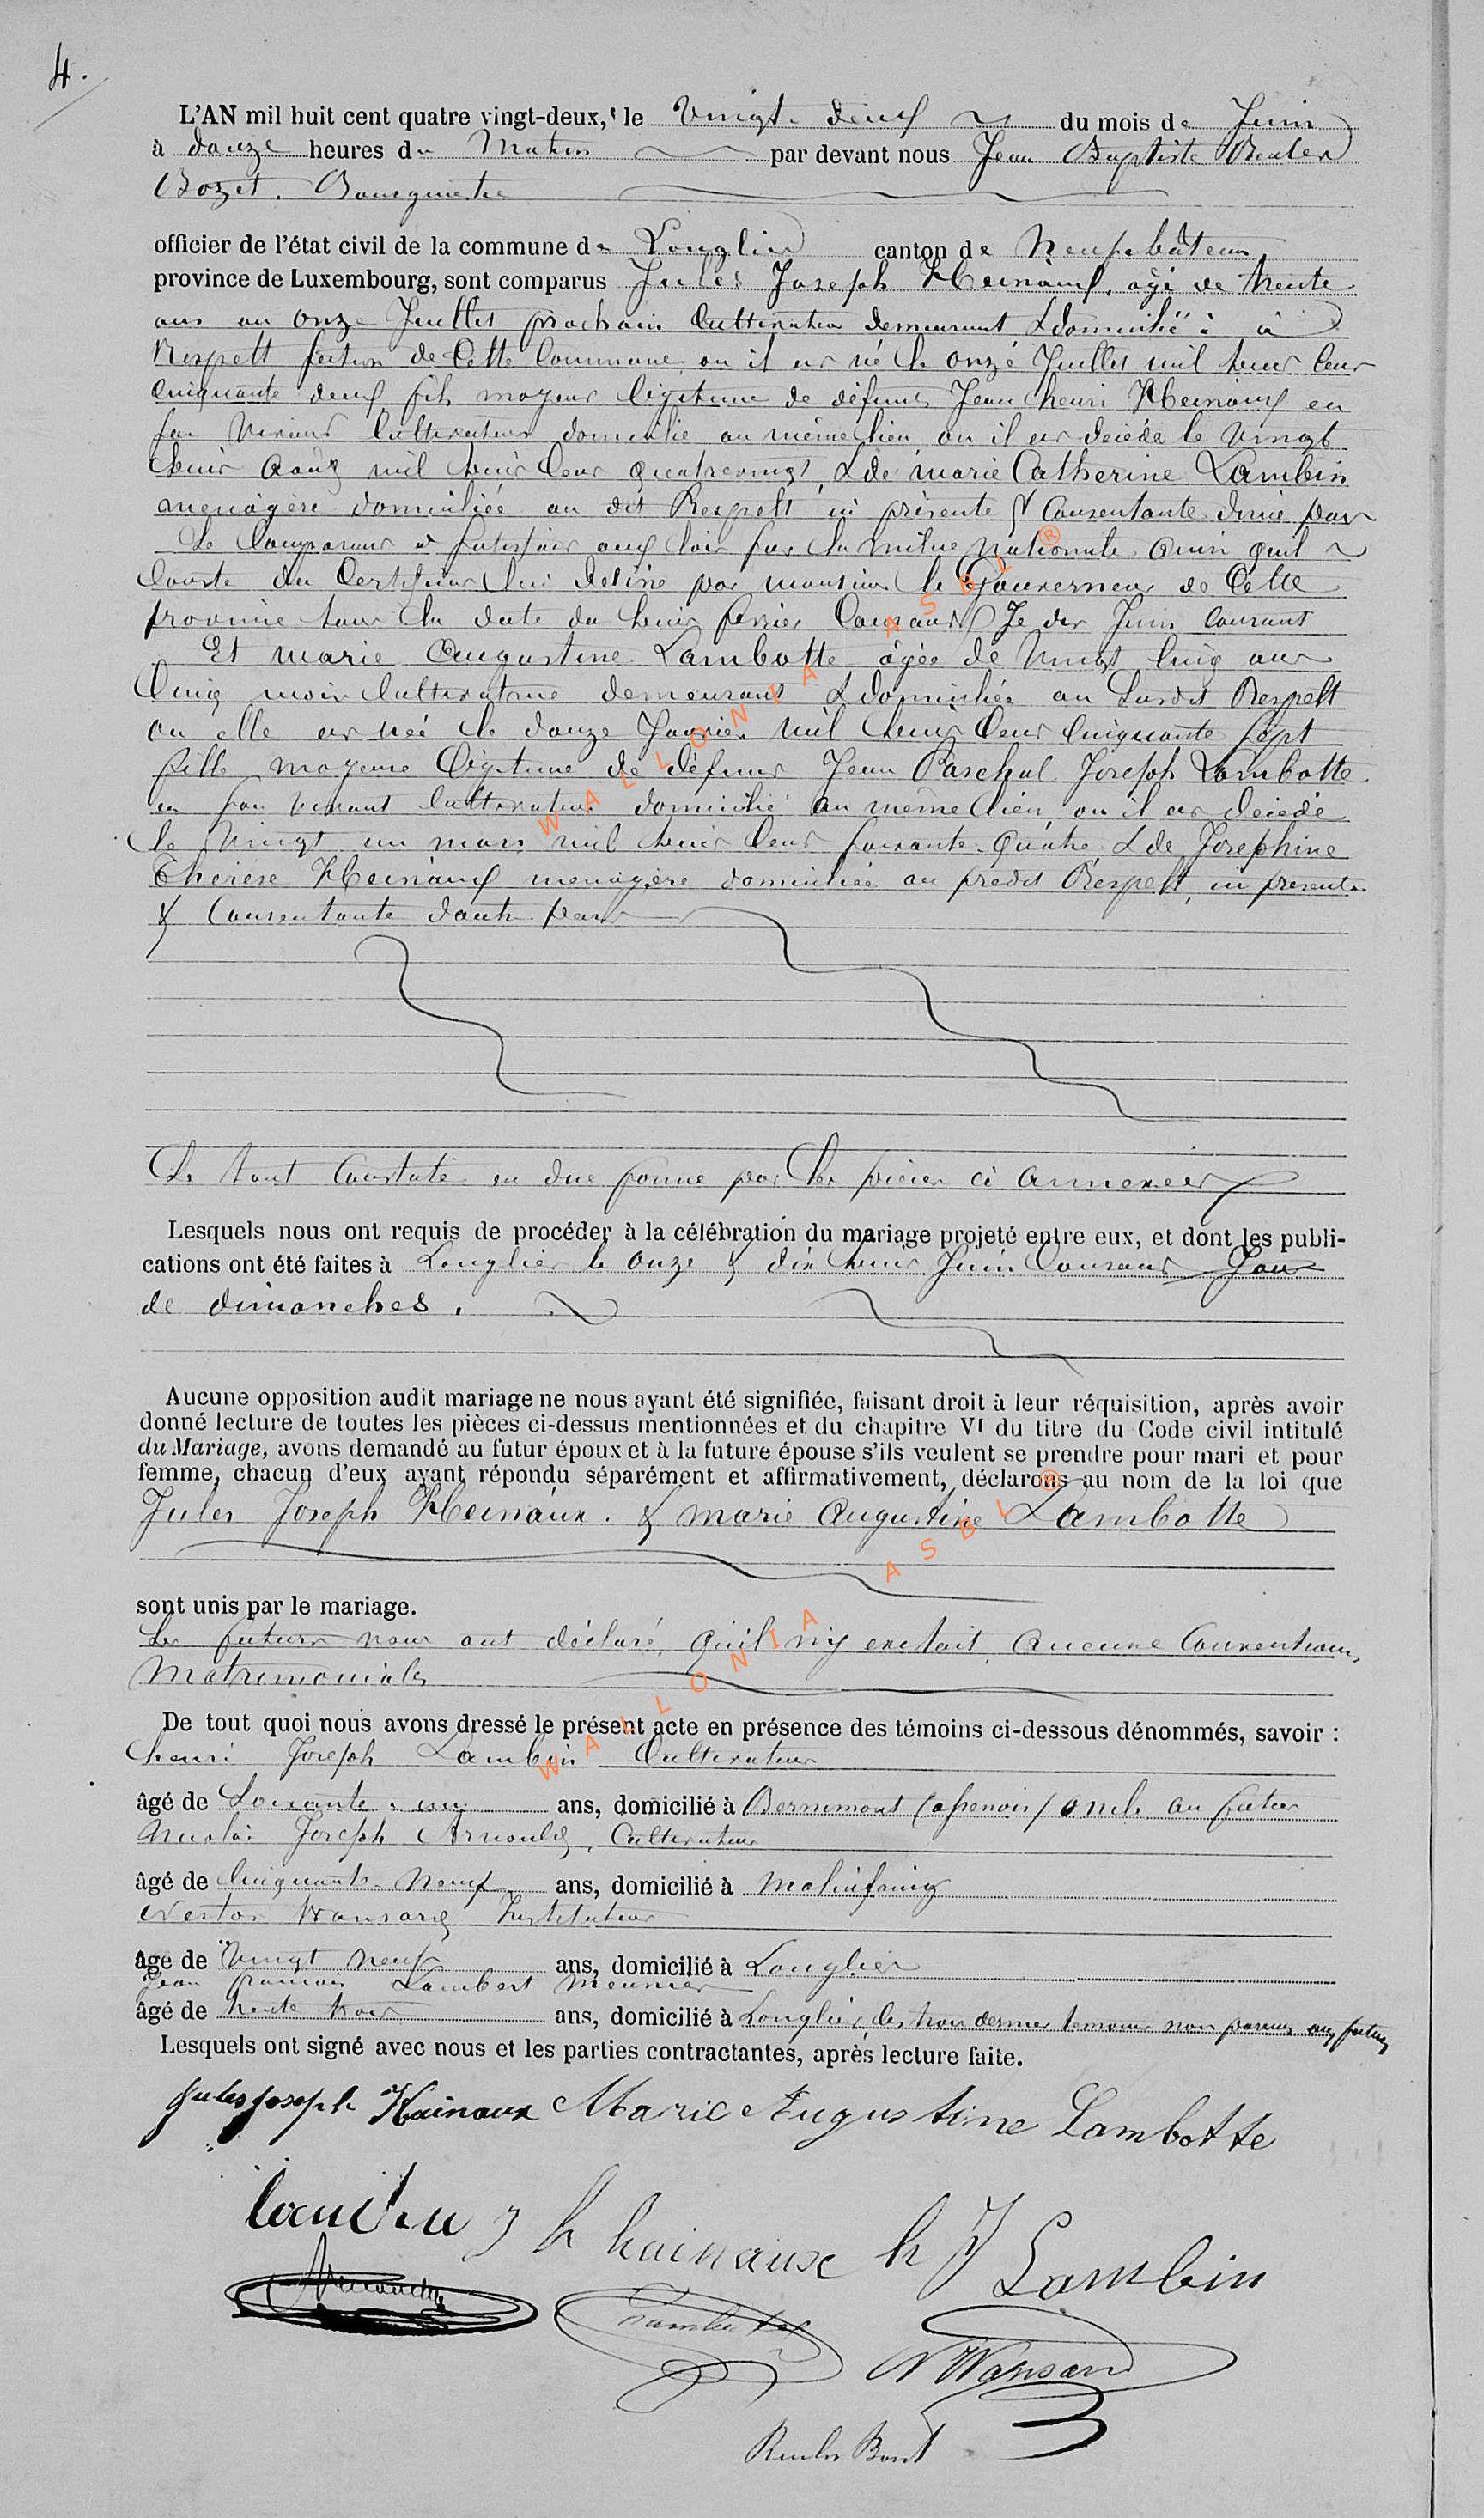 4.
L'AN mil huit cent quatre vingt-deux, le Vingt deux du mois de Juin
à douze heures du Matin par devant nous Jean Baptiste Reuler
Bozet. Bourgmestre
officier de l'état civil de la commune de Longlier canton de Neufchâteau
province de Luxembourg, sont comparus Jules Joseph Heinaux, agé de trente
ans au onze Juillet prochain Cultivateur demeurant & domicilié à
Respelt section de Cette Commune, ou il est né le onze Juillet mil huit Cent
Cinquante deux fils majeur légitime de défunt Jean henri Heinaux en
son vivant Cultivateur domicilié au même lieu ou il est décédé le Vingt
huit Août mil huit Cent quatrevingt, & de marie Catherine Lambin
menagère domiciliée au dit Respelt ici présente & Consentante d'une part
Le Comparant a satisfait aux lois sur la milice nationale ainsi qu'il
Conste du Certificat lui délivré par monsieur le Gouverneur de Cette
province sous la date du huit Juin Courant
Et marie Augustine Lambotte âgée de Vingt Cinq ans
Cinq mois Cultivatrice demeurant & domiciliée au susdit Respelt
ou elle est née le douze Janvier mil huit Cent Cinquante sept
fille majeure légitime de défunt Jean Paschal Joseph Lambotte
en son vivant Cultivateur domicilié au même lieu, ou il est décédé
le Vingt un mars mil huit Cent soixante quatre & de Josephine
Thérèse Heinaux menagère domiciliée au prédit Respelt, ici presente
& Consentante d'autre part
Le tout Constaté en due forme par les pièces ci annexées
Lesquels nous ont requis de procéder à la célébration du mariage projeté entre eux, et dont les publi-
cations ont été faites à Longlier le onze & dix huit Juin Courant Jours
de dimanches.
Aucune opposition audit mariage ne nous ayant été signifiée, faisant droit à leur réquisition, après avoir
donné lecture de toutes les pièces ci-dessus mentionnées et du chapitre VI du titre du Code civil intitulé
du Mariage, avons demandé au futur époux et à la future épouse s'ils veulent se prendre pour mari et pour
femme, chacun d'eux ayant répondu séparément et affirmativement, déclarons au nom de la loi que
Jules Joseph Heinaux. & marie Augustine Lambotte
sont unis par le mariage.
Les futurs nous ont déclaré qu'il n'y existait aucune Conventions
Matrimoniales
De tout quoi nous avons dressé le présent acte en présence des témoins ci-dessous dénommés, savoir :
henri Joseph Lambin Cultivateur
âgé de Soixante un ans, domicilié à Bernimont (assenois) oncle au futur
Nicolas Joseph Arnould, Cultivateur
âgé de Cinquante neuf ans, domicilié à Molinfaing
Nestor Wansard Instituteur
âgé de Vingt neuf ans, domicilié à Longlier
Jean francois Lambert Meunier
âgé de trente trois ans, domicilié à Longlier, les trois derniers temoins non parents aux futurs
Lesquels ont signé avec nous et les parties contractantes, après lecture faite.
Jules joseph Hainaux Marie Augustine Lambotte
Lambin J h hainaux h J Lambin
Lambert
N Wansard
Reuler Bozet
WALLONIA ASBL ®
WALLONIA ASBL ®